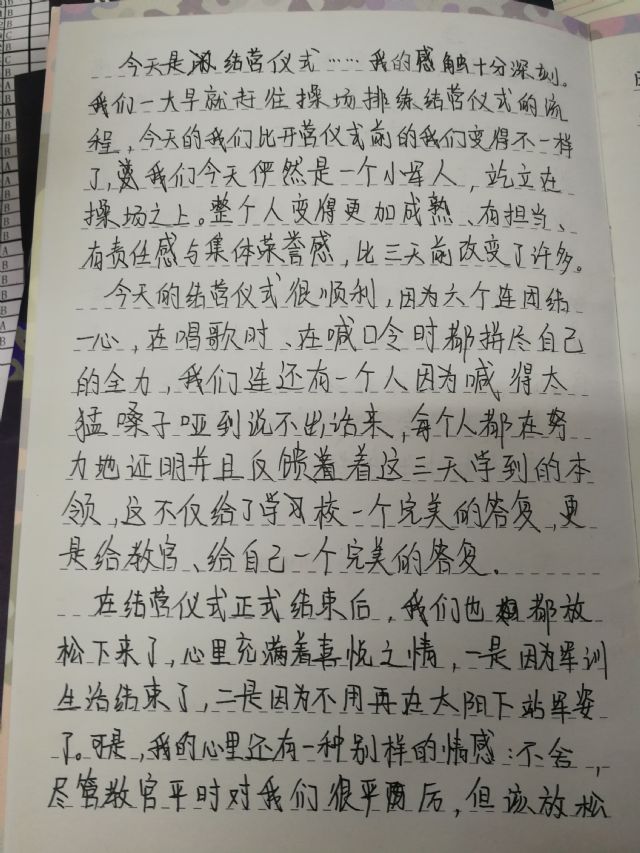 今天是结营仪式……我的感触十分深刻。
我们一大早就赶往操场排练结营仪式的流
程，今天的我们比开营仪式前的我们变得不一样
了，我们今天俨然是一个小军人，屹立在
操场之上。整个人变得更加成熟、有担当、
有责任感与集体荣誉感，比三天前改变了许多。
今天的结营仪式很顺利，因为六个连团结
一心，在唱歌时、在喊口令时都拼尽自己
的全力，我们连还有一个人因为喊得太
猛嗓子哑到说不出话来，每个人都在努
力地证明并且反馈着这三天学到的本
领，这不仅给了学校一个完美的答复，更
是给教官、给自己一个完美的答复。
在结营仪式正式结束后，我们也都放
松下来了，心里充满着喜悦之情，一是因为军训
生活结束了，二是因为不用再在太阳下站军姿
了。可是，我的心里还有一种别样的情感：不舍，
尽管教官平时对我们很严厉，但该放松
B
C
B
B
A
A
A
A
A
B
B
A
B